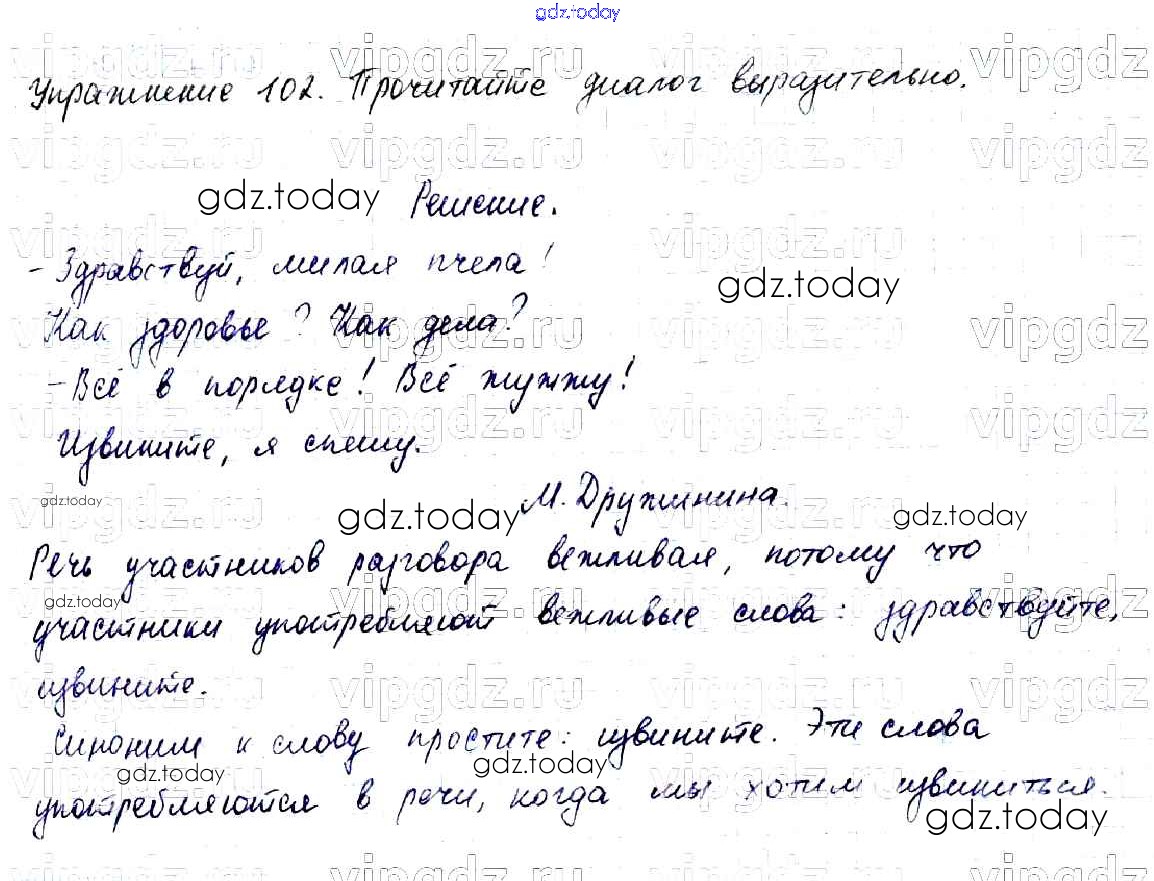 gdz.today
Упражнение 102. Прочитайте диалог выразительно.
gdz.today Решение.
- Здравствуй, милая пчела!
gdz.today
Как здоровье? Как дела?
- Всё в порядке! Всё жужжу!
Извините, я спешу.
gdz.today gdz.today М. Дружинина. gdz.today
Речь участников разговора вежливая, потому что
gdz.today
участники употребляют вежливые слова: здравствуйте,
извините.
Синоним к слову простите: извините. Эти слова
gdz.today gdz.today
употребляются в речи, когда мы хотим извиниться.
gdz.today
vipgdz.ru vipgdz.ru vipgdz.ru vipgdz